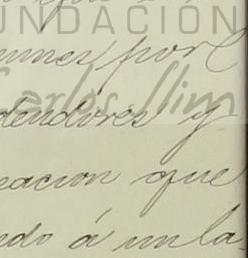 FUNDACIÓN
unes por
Carlos Slim
dendores y
eacion que
ndo á un la-